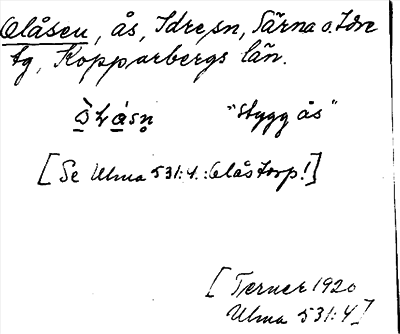 Olåsen, ås, Idre sn, Särna o. Idre
tg, Kopparbergs län.
"stygg ås"
[Se Ulma 531:4. :Olåstorp!]
[Terner 1920
Ulma 531:4]